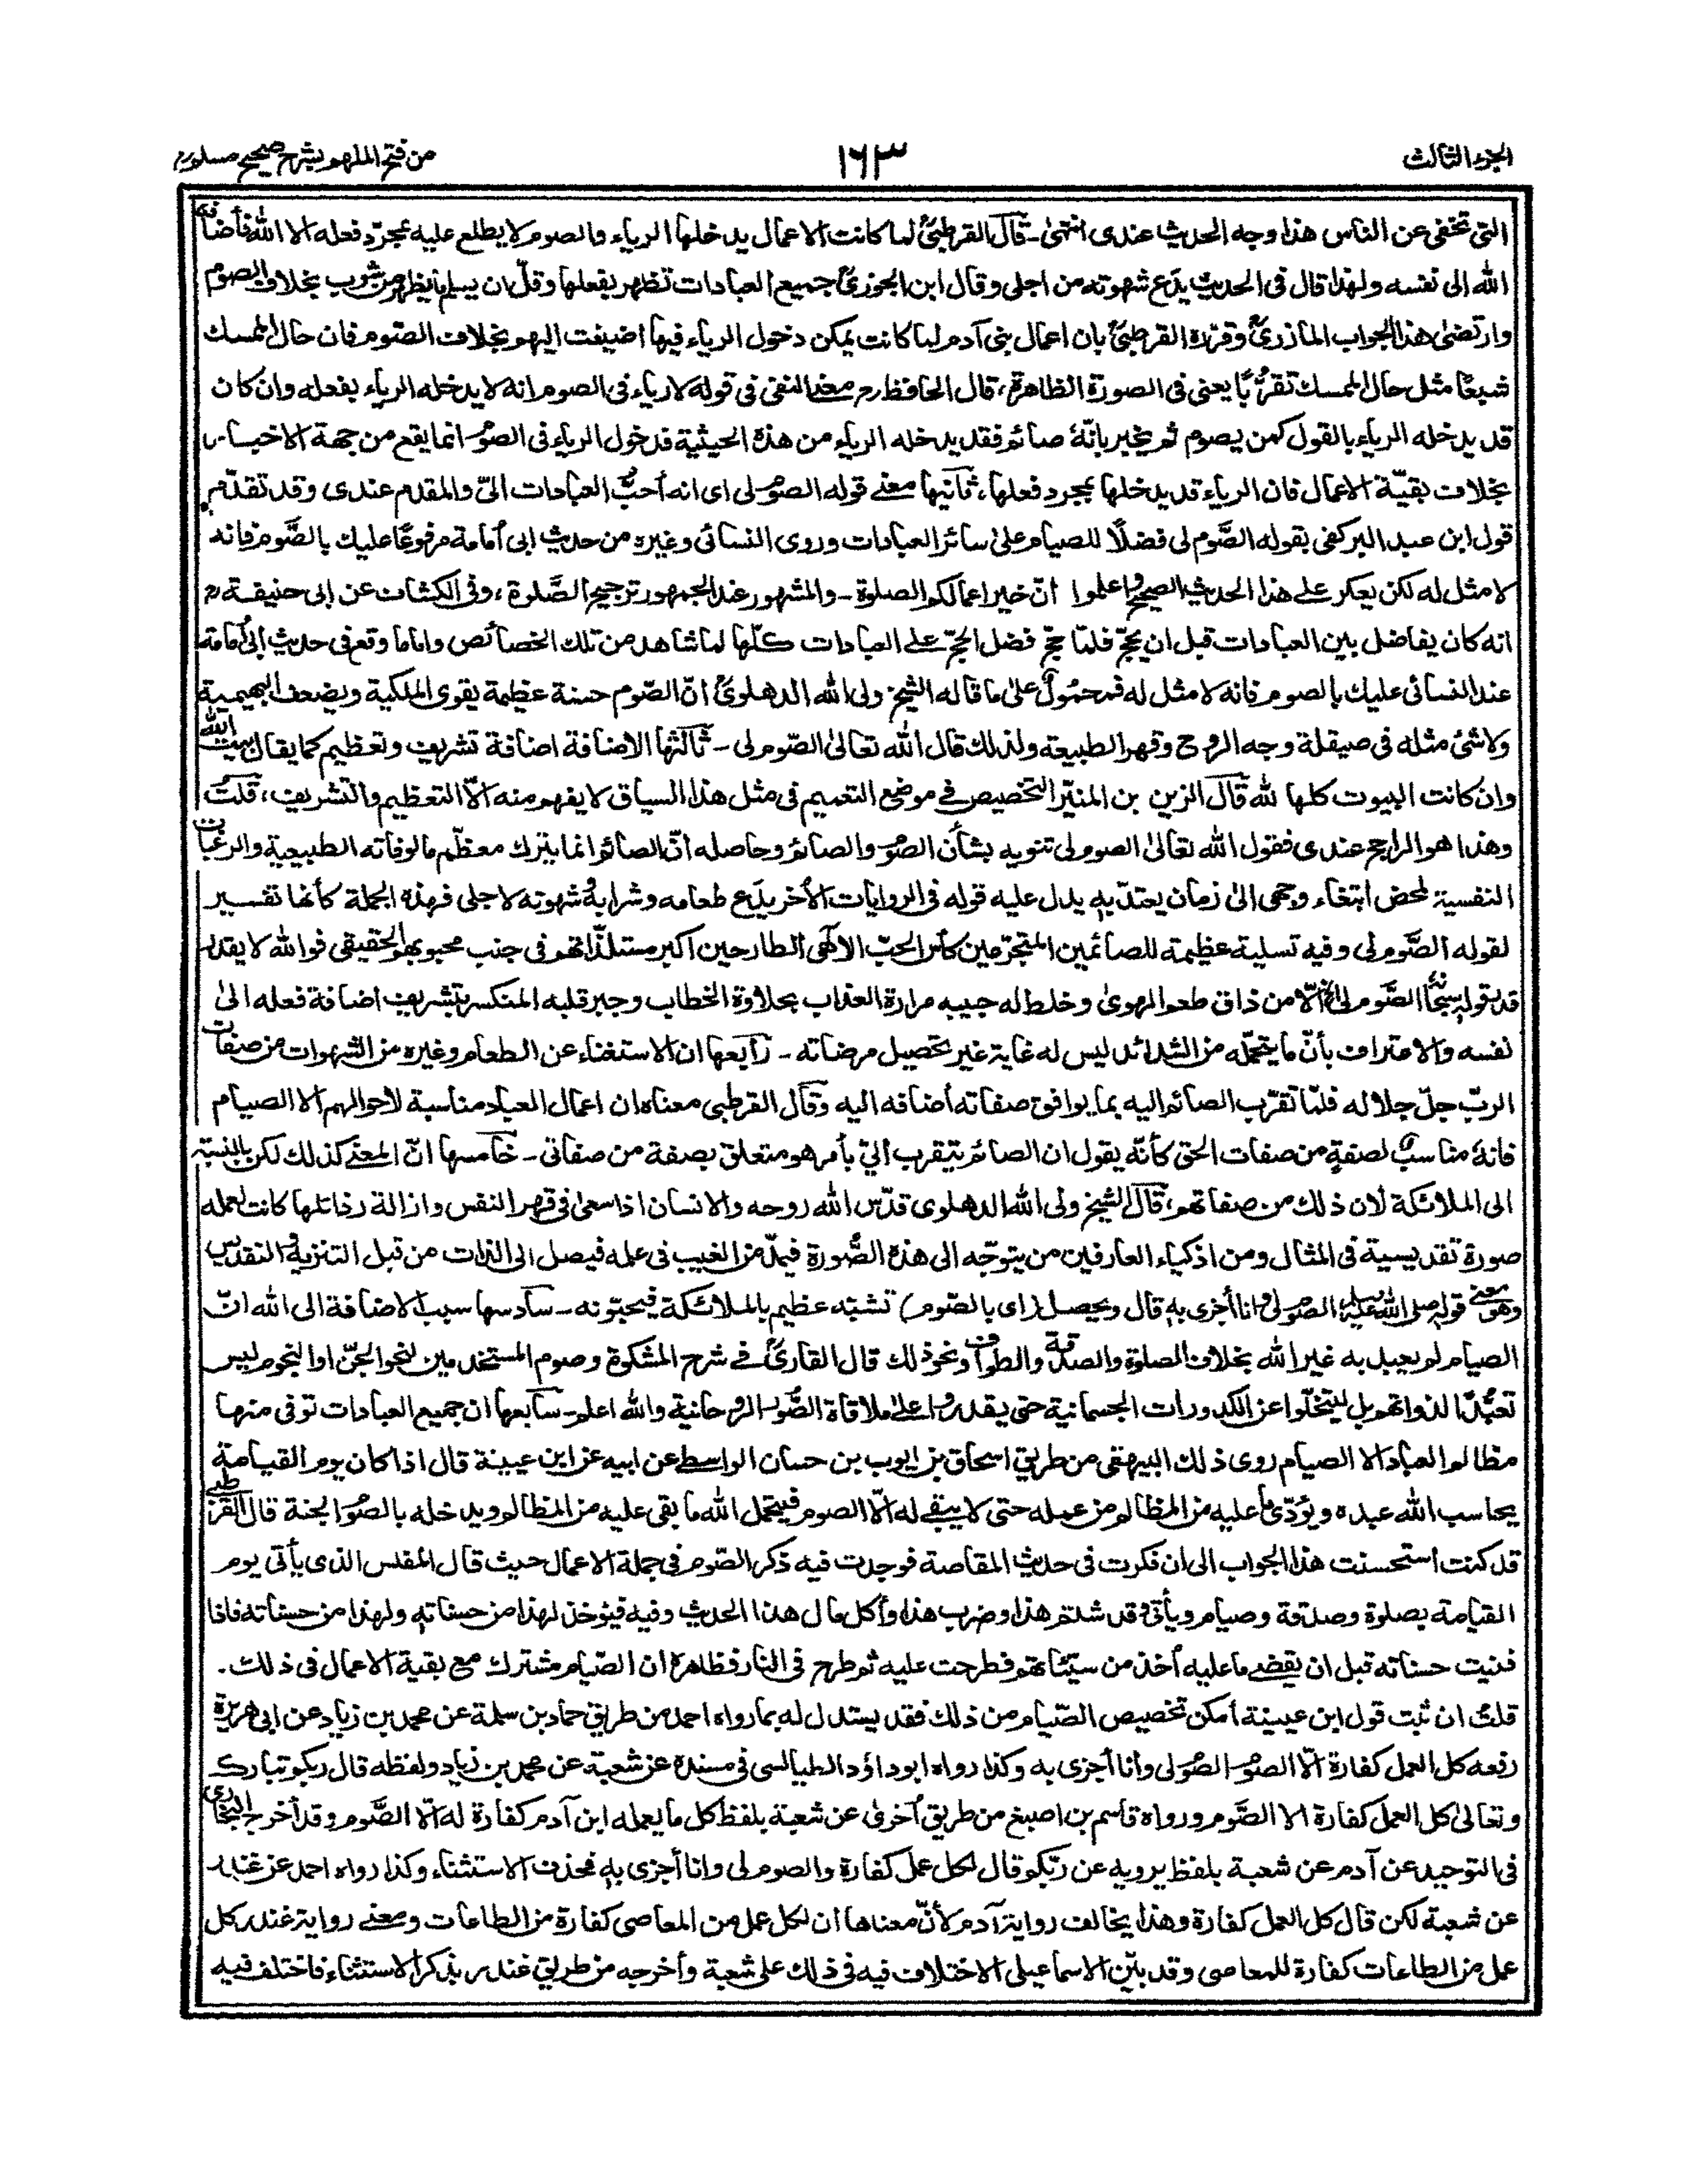 الجزء الثالث
١٦٣
من فتح الملهم بشرح صحيح مسلم
التى تخفى عن الناس هذا وجه الحديث عندى انتهىٰ ـ قال القرطبىؒ لما كانت الاعمال يدخلها الرياء والصوم لا يطلع عليه بمجرّد فعله الا الله فأضافه
الله الى نفسه ولهذا قال فى الحديث يدَع شهوته من اجلى وقال ابن الجوزىؒ جميع العبادات تظهر بفعلها وقلّ ان يسلم ما يظهر من شوب بخلاف الصوم
وارتضىٰ هذا الجواب المازرىؒ وقرّره القرطبىؒ بان اعمال بنى آدم لما كانت يمكن دخول الرياء فيها اضيفت اليهم بخلاف الصّوم فان حال الممسك
شبعًا مثل حال الممسك تقرُّبًا يعنى فى الصورة الظاهرة، قال الحافظ رح معنے النفى فى قوله لا رياء فى الصوم انه لا يدخله الرياء بفعله وان كان
قد يدخله الرياء بالقول كمن يصوم ثم يخبر بانّه صائم فقد يدخله الرياء من هذه الحيثية فدخول الرياء فى الصوم انما يقع من جهة الاخبار
بخلاف بقيّة الاعمال فان الرياء قد يدخلها بمجرد فعلها، ثانيها معنے قوله الصوم لى اى انه أحبّ العبادات الىّ والمقدم عندى وقد تقدّم
قول ابن عبد البر كفى بقوله الصَّوم لى فضلًا للصيام علىٰ سائر العبادات وروى النسائى وغيره من حديث ابى أمامة مرفوعًا عليك بالصَّوم فانه
لا مثل له لكن يعكر على هذا الحديث الصحيح واعلموا انّ خير اعمالكم الصلوة ـ والمشهور عند الجمهور ترجيح الصَّلوة، وفى الكشاف عن ابى حنيفة رح
انه كان يفاضل بين العبادات قبل ان يحجّ فلمّا حجّ فضل الحجّ على العبادات كلّها لما شاهد من تلك الخصائص واما ما وقع فى حديث ابى أمامة
عند النسائى عليك بالصوم فانه لا مثل له فمحمُولٌ علىٰ ما قاله الشيخ ولى الله الدهلوىؒ انّ الصّوم حسنة عظيمة يقوى الملكية ويضعف البهيمية
ولا شئ مثله فى صيقلة وجه الروح وقهر الطبيعة ولذلك قال الله تعالىٰ الصّوم لى ـ ثالثها الاضافة اضافة تشريف وتعظيم كما يقال بيت الله
وان كانت البيوت كلها لله قال الزين بن المنيّر التخصيص فے موضع التعميم فى مثل هذا السياق لا يفهم منه الّا التعظيم والتشريف، قلتُ
وهذا هو الراجح عندى فقول الله تعالىٰ الصوم لى تنويه بشأن الصوم والصائم وحاصله انّ الصائم انما يترك معظّم مالوفاته الطبيعية والرغبات
النفسية لمحض ابتغاء وجهى الىٰ زمان يعتدّ به يدل عليه قوله فى الروايات الأخر يدَع طعامه وشرابه وشهوته لاجلى فهذه الجملة كأنها تفسير
لقوله الصَّوم لى وفيه تسلية عظيمة للصائمين المتجرّعين كأس الحبّ الالٰهى الطارحين اكبر مستلذّاتهم فى جنب محبوبهم الحقيقى فوالله لا يقدر
قدر قوله سبحانه الصَّوم لى الخ الّا من ذاق طعم الهوىٰ وخلط له حبيبه مرارة العذاب بحلاوة الخطاب وجبر قلبه المنكسر بتشريف اضافة فعله الىٰ
نفسه والاعتراف بأنّ ما يتحمّله من الشدائد ليس له غاية غير تحصيل مرضاته ـ رابعها ان الاستغناء عن الطعام وغيره من الشهوات من صفات
الربّ جلّ جلاله فلمّا تقرّب الصائم اليه بما يوافق صفاته أضافه اليه وقال القرطبى معناه ان اعمال العباد مناسبة لأحوالهم الا الصيام
فانه مناسبٌ لصفةٍ من صفات الحق كأنّه يقول ان الصائم يتقرب الىّ بأمر هو متعلق بصفة من صفاتى ـ خامسها انّ المعنے كذلك لكن بالنسبة
الى الملائكة لأن ذلك من صفاتهم، قال الشيخ ولى الله الدهلوى قدّس الله روحه والانسان اذا سعىٰ فى قهر النفس وازالة رذائلها كانت لعمله
صورة تقديسية فى المثال ومن اذكياء العارفين من يتوجّه الى هذه الصُّورة فيمدّ من الغيب فى علمه فيصل الى الذات من قبل التنزيه والتقديس
وهو معنے قوله صلى الله عليه وسلم الصوم لى وانا أجزى به قال ويحصل (اى بالصّوم) تشبّه عظيم بالملائكة فيحبّونه ـ سادسها سبب الاضافة الى الله انّ
الصيام لم يعبد به غير الله بخلاف الصلوة والصدقة والطواف ونحو ذلك قال القارىؒ فے شرح المشكوة وصوم المستخدمين لنحو الجنّ او النجوم ليس
تعبُّدًا لذواتهم بل ليتخلّوا عن الكدورات الجسمانية حتى يقدروا علىٰ ملاقاة الصُّوَر الروحانية والله اعلم ـ سابعها ان جميع العبادات توفى منها
مظالم العباد الا الصيام روى ذلك البيهقى من طريق اسحاق بن ايوب بن حسان الواسطے عن ابيه عن ابن عيينة قال اذا كان يوم القيامة
يحاسب الله عبده ويؤدّى ما عليه من المظالم من عمله حتى لا يبقے له الّا الصوم فيتحمل الله ما بقى عليه من المظالم ويدخله بالصوم الجنة قال القرطبے
قد كنت أستحسنت هذا الجواب الى ان فكرت فى حديث المقاصة فوجدت فيه ذكر الصّوم فى جملة الاعمال حيث قال المفلس الذى يأتى يوم
القيامة بصلوة وصدقة وصيام ويأتى وقد شتم هذا وضرب هذا وأكل مال هذا الحديث وفيه فيؤخذ لهذا من حسناته ولهذا من حسناته فاذا
فنيت حسناته قبل ان يقضے ما عليه أخذ من سيّئاتهم فطرحت عليه ثم طرح فى النار فظاهره ان الصّيام مشترك مع بقية الاعمال فى ذلك.
قلتُ ان ثبت قول ابن عيينة أمكن تخصيص الصّيام من ذلك فقد يستدل له بما رواه احمد من طريق حماد بن سلمة عن محمد بن زياد عن ابى هريرة
رفعه كل العمل كفارة الّا الصوم الصوم لى وانا أجزى به وكذا رواه ابو داؤد الطيالسى فى مسنده عن شعبة عن محمد بن زياد ولفظه قال ربكم تبارك
وتعالىٰ كل العمل كفارة الا الصَّوم ورواه قاسم بن اصبغ من طريق أخرىٰ عن شعبة بلفظ كل ما يعمله ابن آدم كفارة له الّا الصَّوم وقد أخرج البخارى
فى التوحيد عن آدم عن شعبة بلفظ يرويه عن ربّكم قال لكل عمل كفارة والصوم لى وانا أجزى به فحذف الاستثناء وكذا رواه احمد عن غندر
عن شعبة لكن قال كل العمل كفارة وهذا يخالف رواية آدم لأنّ معناها ان لكل عمل من المعاصى كفارة من الطاعات ومعنے رواية غندر كل
عمل من الطاعات كفارة للمعاصى وقد بيّن الاسماعيلى الاختلاف فيه فى ذلك على شعبة وأخرجه من طريق غندر بذكر الاستثناء فاختلف فيه